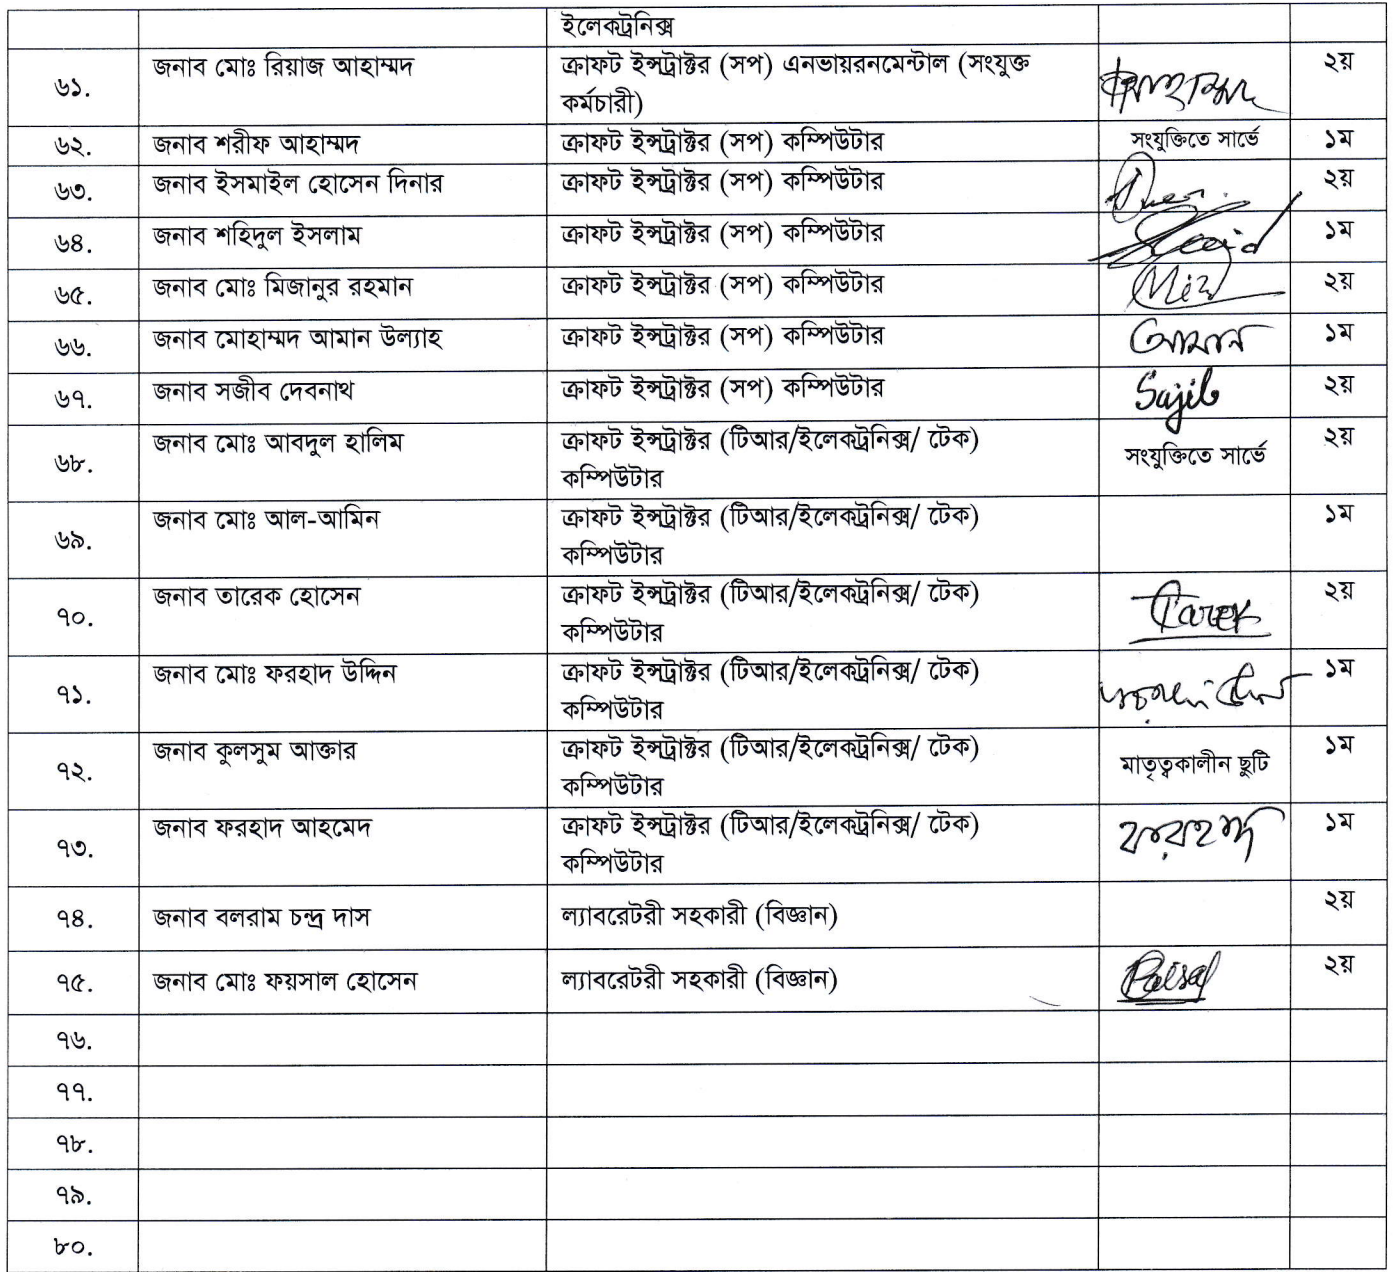 ইলেকট্রনিক্স
৬১. জনাব মোঃ রিয়াজ আহাম্মদ ক্রাফট ইন্সট্রাক্টর (সপ) এনভায়রনমেন্টাল (সংযুক্ত ২য়
কর্মচারী)
৬২. জনাব শরীফ আহাম্মদ ক্রাফট ইন্সট্রাক্টর (সপ) কম্পিউটার সংযুক্তিতে সার্ভে ১ম
৬৩. জনাব ইসমাইল হোসেন দিনার ক্রাফট ইন্সট্রাক্টর (সপ) কম্পিউটার ২য়
৬৪. জনাব শহিদুল ইসলাম ক্রাফট ইন্সট্রাক্টর (সপ) কম্পিউটার ১ম
৬৫. জনাব মোঃ মিজানুর রহমান ক্রাফট ইন্সট্রাক্টর (সপ) কম্পিউটার ২য়
৬৬. জনাব মোহাম্মদ আমান উল্যাহ ক্রাফট ইন্সট্রাক্টর (সপ) কম্পিউটার আমান ১ম
৬৭. জনাব সজীব দেবনাথ ক্রাফট ইন্সট্রাক্টর (সপ) কম্পিউটার Sajib ২য়
৬৮. জনাব মোঃ আবদুল হালিম ক্রাফট ইন্সট্রাক্টর (টিআর/ইলেকট্রনিক্স/ টেক) সংযুক্তিতে সার্ভে ২য়
কম্পিউটার
৬৯. জনাব মোঃ আল-আমিন ক্রাফট ইন্সট্রাক্টর (টিআর/ইলেকট্রনিক্স/ টেক) ১ম
কম্পিউটার
৭০. জনাব তারেক হোসেন ক্রাফট ইন্সট্রাক্টর (টিআর/ইলেকট্রনিক্স/ টেক) Tarek ২য়
কম্পিউটার
৭১. জনাব মোঃ ফরহাদ উদ্দিন ক্রাফট ইন্সট্রাক্টর (টিআর/ইলেকট্রনিক্স/ টেক) ১ম
কম্পিউটার
৭২. জনাব কুলসুম আক্তার ক্রাফট ইন্সট্রাক্টর (টিআর/ইলেকট্রনিক্স/ টেক) মাতৃত্বকালীন ছুটি ১ম
কম্পিউটার
৭৩. জনাব ফরহাদ আহমেদ ক্রাফট ইন্সট্রাক্টর (টিআর/ইলেকট্রনিক্স/ টেক) ফরহাদ ১ম
কম্পিউটার
৭৪. জনাব বলরাম চন্দ্র দাস ল্যাবরেটরী সহকারী (বিজ্ঞান) ২য়
৭৫. জনাব মোঃ ফয়সাল হোসেন ল্যাবরেটরী সহকারী (বিজ্ঞান) ২য়
৭৬.
৭৭.
৭৮.
৭৯.
৮০.